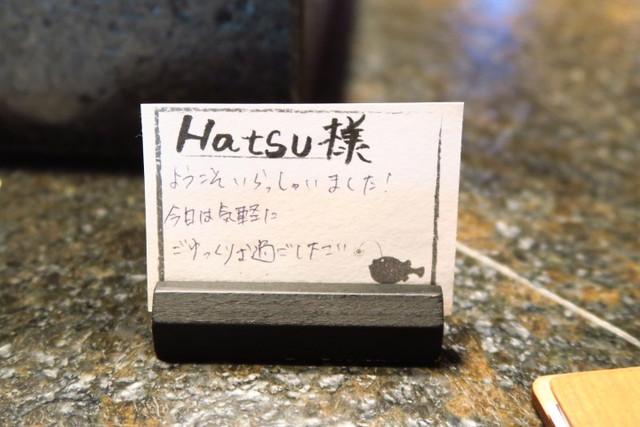 Hatsu様
ようこそいらっしゃいました!
今日は気軽に
ごゆっくりお過ごし下さい